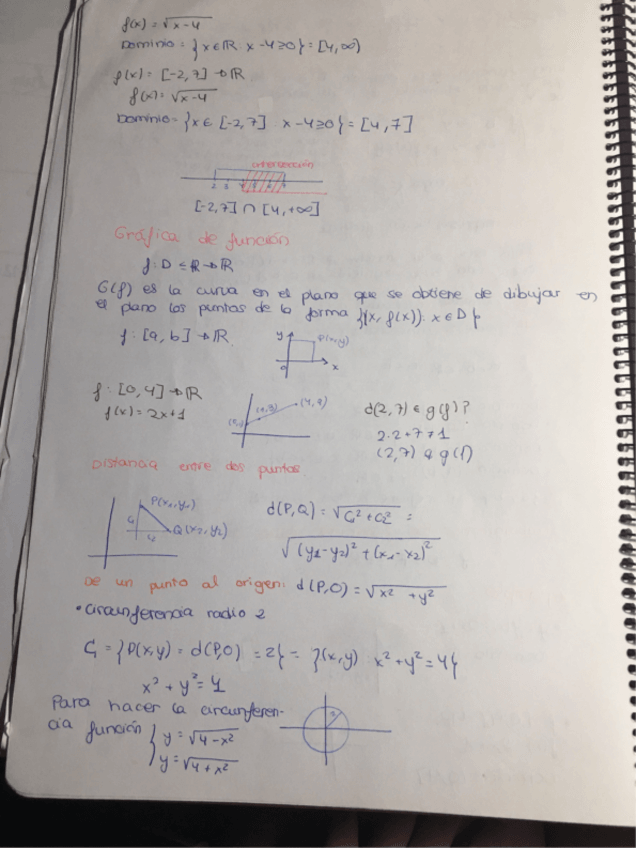 f(x) = √x-4
Dominio = {x∈ℝ : x-4≥0} = [4,∞)
f(x) = [-2,7] → ℝ
f(x) = √x-4
Dominio = {x∈ [-2,7] : x-4≥0} = [4,7]
intersección
[-2,7] ∩ [4,+∞]
Gráfica de función
f: D ⊆ ℝ → ℝ
G(f) es la curva en el plano que se obtiene de dibujar en
el plano los puntos de la forma {(x, f(x)) : x∈D}
f: [a,b] → ℝ
y P(x,y)
0 x
f: [0,4] → ℝ
f(x) = 2x+1
d(2,7) ∈ g(f)?
(2,7) ∉ g(f)
Distancia entre dos puntos
P(x₁,y₁)
Q(x₂,y₂)
d(P,Q) = √C₁² + C₂² =
√(y₁-y₂)² + (x₁-x₂)²
De un punto al origen: d(P,O) = √x² + y²
• Circunferencia radio 2
C = {P(x,y) = d(P,O) = 2} = {(x,y) : x²+y² = 4}
Para hacer la circunferen-
cia función { y = √4-x²
y = √4+x²